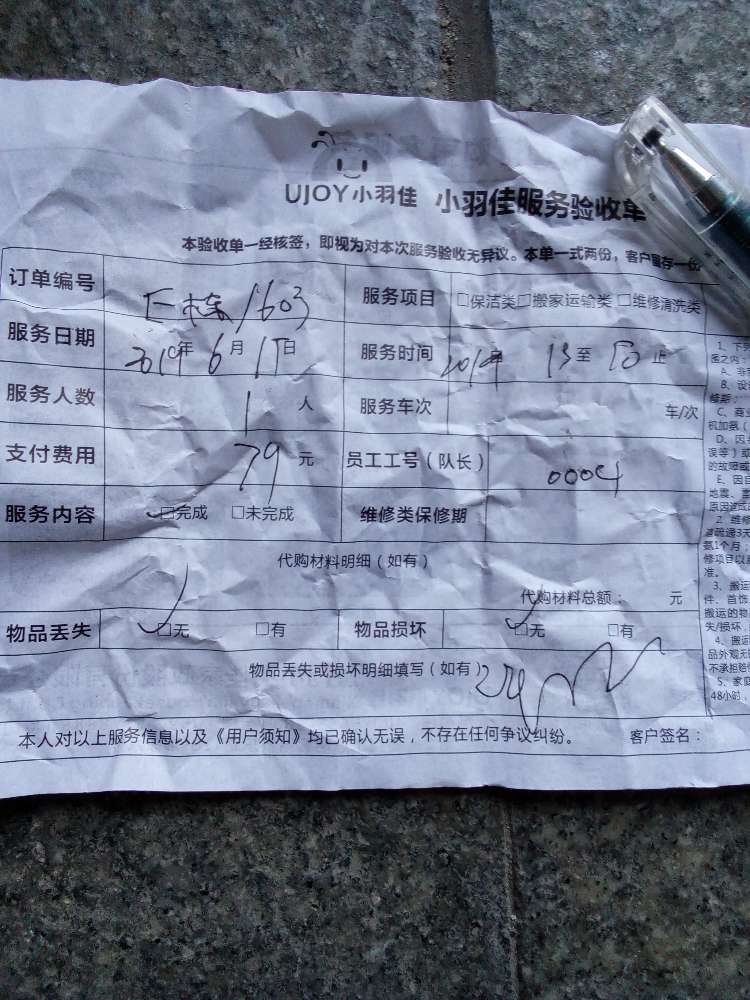 UJOY小羽佳 小羽佳服务验收单
本验收单一经核签，即视为对本次服务验收无异议。本单一式两份，客户留存一份
订单编号 E栋1603 服务项目 □保洁类□搬家运输类 □维修清洗类
服务日期 年 6月 日 服务时间 年 13至 止
服务人数 1 人 服务车次 车/次
支付费用 79 元 员工工号（队长） 0004
服务内容 ☑完成 □未完成 维修类保修期
代购材料明细（如有）
代购材料总额： 元
物品丢失 ☑无 □有 物品损坏 ☑无 □有
物品丢失或损坏明细填写（如有）
本人对以上服务信息以及《用户须知》均已确认无误，不存在任何争议纠纷。 客户签名：
1、下列
A、非
B、设
维斯：
C、商业
机加氨（
D、因
误等）或
的故障或
E、因自
地震、
原因造成的
2、维修
道疏通3天
氨1个月；
修项目以
准。
3、搬运
件、首饰
搬运的物
失/损坏，
4、搬运
品外观无
不承担赔
5、家庭
48小时，